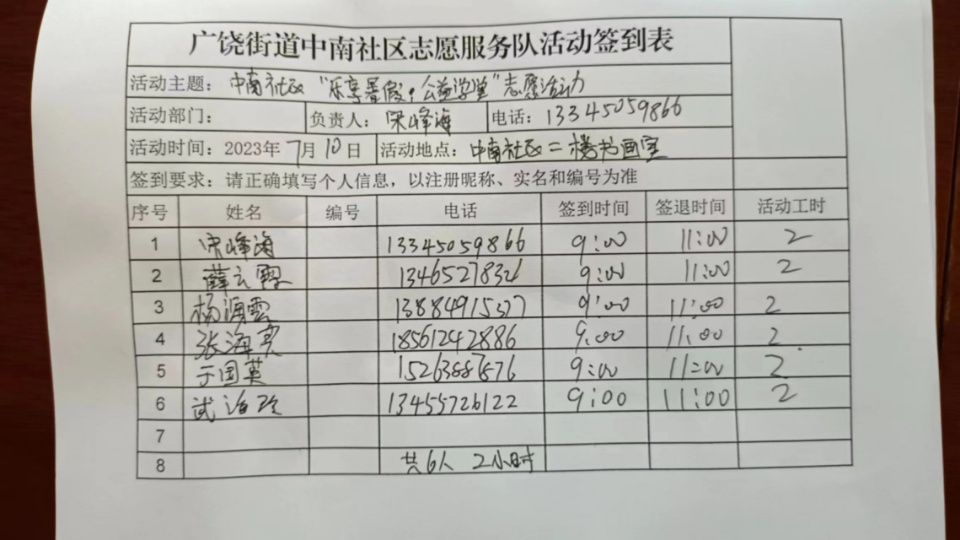 广饶街道中南社区志愿服务队活动签到表
活动主题：中南社区“乐享暑假，公益学堂”志愿活动
活动部门： 负责人：宋峰海 电话：13345059866
活动时间：2023年7月10日 活动地点：中南社区二楼书画室
签到要求：请正确填写个人信息，以注册昵称、实名和编号为准
序号 姓名 编号 电话 签到时间 签退时间 活动工时
1 宋峰海 13345059866 9:00 11:00 2
2 薛云霞 9:00 11:00 2
3 杨海云 13884915377 9:00 11:00 2
4 张海宾 18561242886 9:00 11:00 2
5 于国英 9:00 11:00 2
6 武 13455726122 9:00 11:00 2
7
8 共6人 2小时